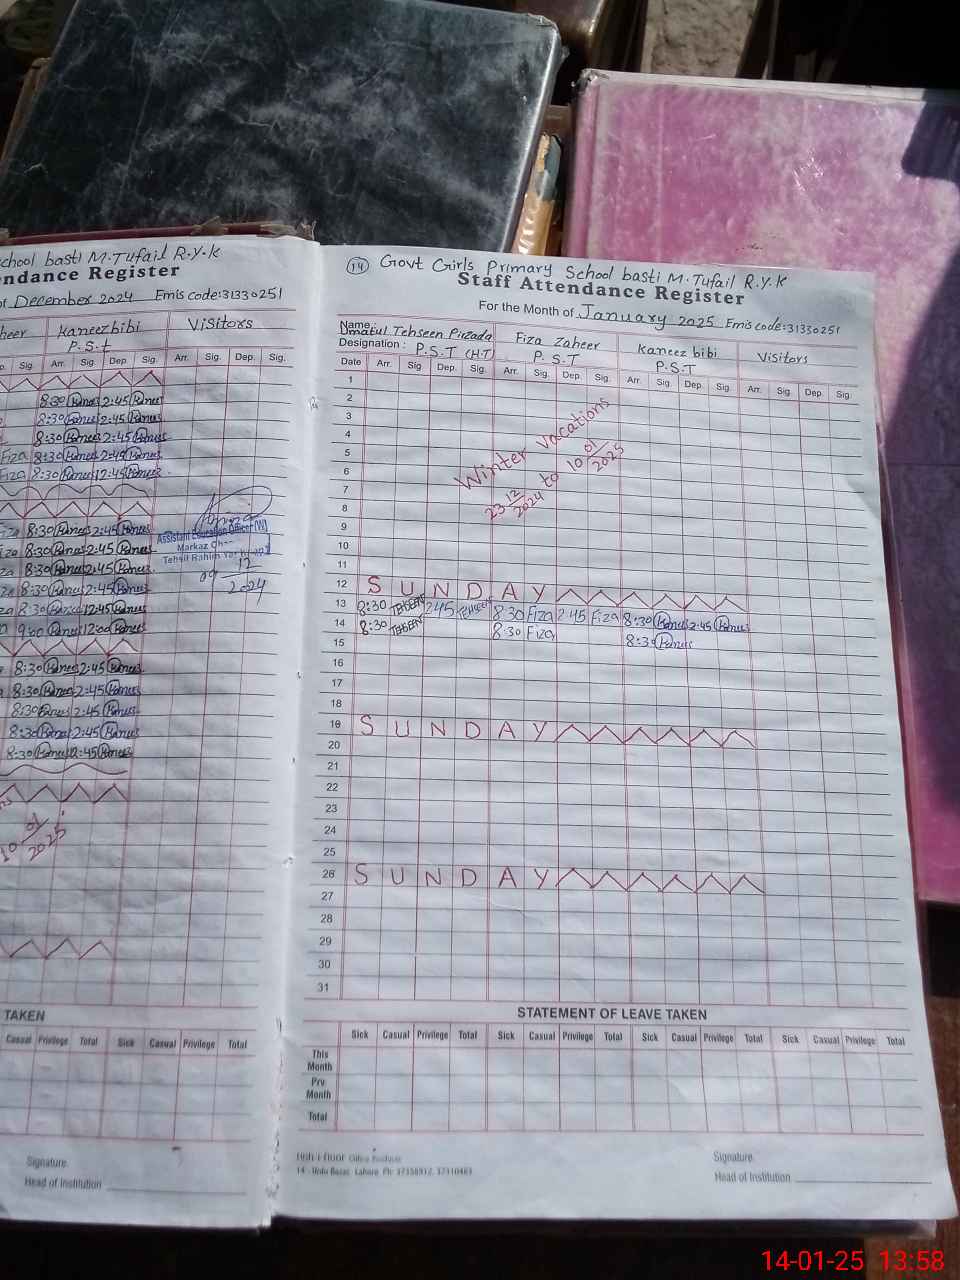 School basti M.Tufail R.Y.K
Attendance Register
of December 2024 Emis code:31330251
heer Kaneez bibi Visitors
P.S.t
Sig. Arr. Sig. Dep. Sig. Arr. Sig. Dep. Sig.
8:30 2:45
8:30 2:45
8:30 2:45
Fiza 8:30 2:45
Fiza 8:30 12:45
8:30 2:45
8:30 2:45
8:30 2:45
8:30 2:45
8:30 12:45
9:00 12:00
8:30 2:45
8:30 2:45
8:30 2:45
8:30 2:45
8:30 2:45
Assistant Education Officer (W)
Markaz
Tehsil Rahim Yar Khan
09 12 2024
10 01 2025
TAKEN
Casual Privilege Total Sick Casual Privilege Total
Signature.
Head of Institution
14 Govt Girls Primary School basti M.Tufail R.Y.K
Staff Attendance Register
For the Month of January 2025 Emis code:31330251
Name: Umatul Tehseen Pirzada Fiza Zaheer Kaneez bibi Visitors
Designation: P.S.T (H.T) P.S.T P.S.T
Date Arr. Sig. Dep. Sig. Arr. Sig. Dep. Sig. Arr. Sig. Dep. Sig. Arr. Sig. Dep. Sig.
1
2
3
4
5
6
7
8
9
10
11
Winter vacations
23 12 2024 to 10 01 2025
12 SUNDAY
13 8:30 TEHSEEN 2:45 TEHSEEN 8:30 Fiza 2:45 Fiza 8:30 2:45
14 8:30 TEHSEEN 8:30 Fiza 8:30
15
16
17
18
19 SUNDAY
20
21
22
23
24
25
26 SUNDAY
27
28
29
30
31
STATEMENT OF LEAVE TAKEN
Sick Casual Privilege Total Sick Casual Privilege Total Sick Casual Privilege Total Sick Casual Privilege Total
This Month
Prv. Month
Total
14 - Urdu Bazar, Lahore.
Signature.
Head of Institution
14-01-25 13:58